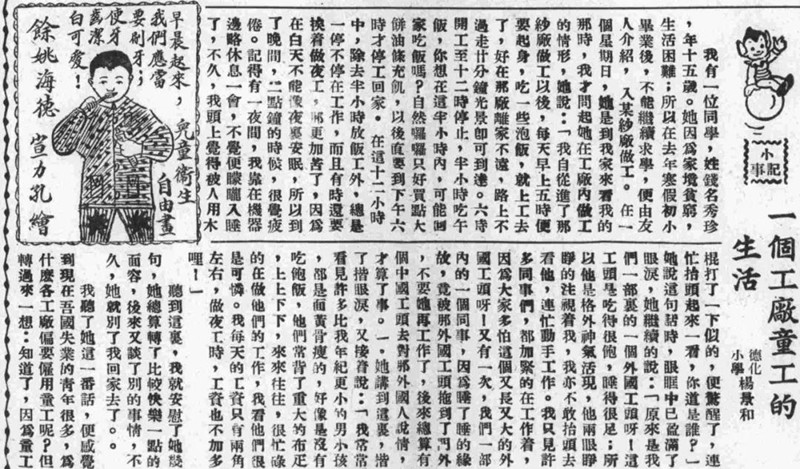 小記事
一個工廠童工的
生活
德化小學 楊景和
我有一位同學，姓錢名秀珍
，年十五歲。她因為家境貧窮，
生活困難；所以在去年寒假初小
畢業後，不能繼續求學，便由友
人介紹，入某紗廠做工。在一
個星期日，她是到我家來看我的
那時，我才問起她在工廠內做工
的情形，她說：「我自從進了那
紗廠做工以後，每天早上五時便
要起身，吃一些泡飯，就上工去
了，好在那廠離家不遠，路上不
過走廿分鐘光景卽可到達。六時
開工至十二時停止，半小時吃午
飯，你想在這半小時內，可能回
家吃飯嗎？自然囉囉只好買點大
餅油條充飢，以後直要到下午六
時才停工回家。在這十二小時
中，除去半小時放飯工外，總是
一停不停在工作，而且有時還要
換着做夜工，那更加苦了，因爲
在白天不能像夜裏安眠，所以到
了晚間，二點鐘的時候，很覺疲
倦。記得有一夜間，我靠在機器
邊略休息一會，不覺便矇矓入睡
了，不久，我頭上覺得被人用木
棍打了一下似的，便驚醒了，連
忙抬頭起來一看，你道是誰？」
她說這句話時，眼眶中已盈滿了
眼淚，她繼續的說：「原來是我
們一部裏的一個外國工頭呀！這
工頭是吃得很飽，睡得很足；所
以他是格外神氣活現，他兩眼睜
睜的注視着我，我亦不敢抬頭去
看他，連忙動手工作。我只見許
多同事們，都加緊的在工作着，
因爲大家多怕這個又長又大的外
國工頭呀！又有一次，我們一部
內的一個同事，因爲睡了睡的緣
故，竟被那外國工頭拖到了門外
，不要她再工作了，後來總算有
個中國工頭去對那外國人說情，
才算了事。」她講到這裏，揩
了揩眼淚，又接着說：「我常常
看見許多比我年紀更小的男小孩
，都是面黃骨瘦的，好像是沒有
吃飽飯，他們常常背了重大的布疋
，上上下下，來來往往，很忙碌
的在做他們的工作，我看他們很
是可憐。我每天的工資只有兩角
左右，做夜工時，工資也不加多
哩！」
聽到這裏，我就安慰了她幾
句，她總算轉了比較快樂一點的
面容，後來又談了別的事情，不
久，她就別了我回家去了。
我聽了她這一番話，便感覺
到現在吾國失業的青年很多，爲
什麼各工廠偏要僱用童工呢？但
轉過來一想：知道了，因爲童工
早晨起來，
我們應當
要刷牙；
使牙
齒潔
白可愛！
兒童衞生
自由畫
餘姚海德 豈力孔繪